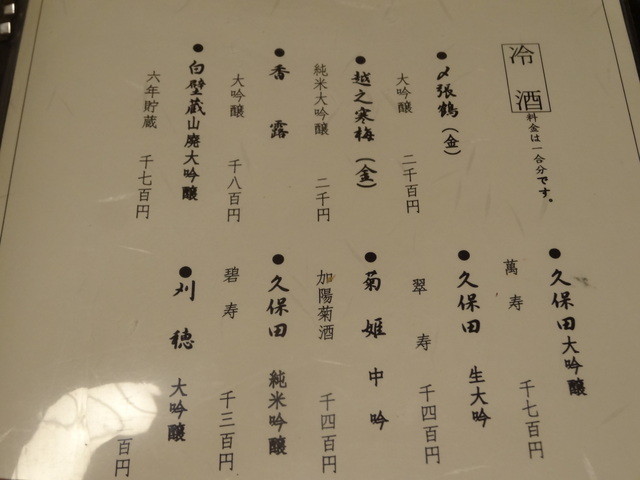 冷酒
料金は一合分です。
●〆張鶴(金)
大吟醸 二千百円
●越之寒梅(金)
純米大吟醸 二千円
●香露
大吟醸 千八百円
●白壁蔵山廃大吟醸
六年貯蔵 千七百円
●久保田大吟醸
萬寿 千七百円
●久保田 生大吟
翠寿 千四百円
●菊姫 中吟
加陽菊酒 千四百円
●久保田 純米吟醸
碧寿 千三百円
●刈穂 大吟醸
百円